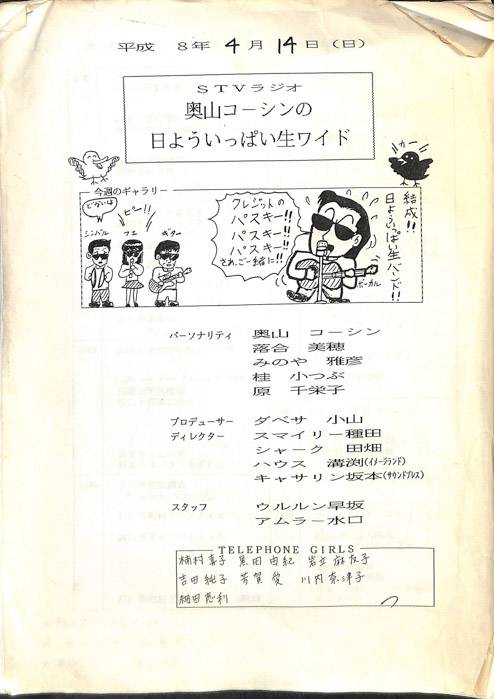 平成 8年 4月 14日(日)
STVラジオ
奥山コーシンの
日よういっぱい生ワイド
カー
今週のギャラリー
ピー!!
シンバル
フエ
ギター
クレジットの
パスキー!!
パスキー!!
パスキー!!
さぁ、ご一緒に!!
結成!!
日よういっぱい生バンド!!
ボーカル
パーソナリティ 奥山 コーシン
落合 美穂
みのや 雅彦
桂 小つぶ
原 千栄子
プロデューサー ダベサ 小山
ディレクター スマイリー種田
シャーク 田畑
ハウス 溝渕(イメージランド)
キャサリン坂本(サウンドプレス)
スタッフ ウルルン早坂
アムラー水口
TELEPHONE GIRLS
楠村喜子 黒田由紀 岩立麻友子
吉田純子 芳賀愛 川内奈津子
細田恵利